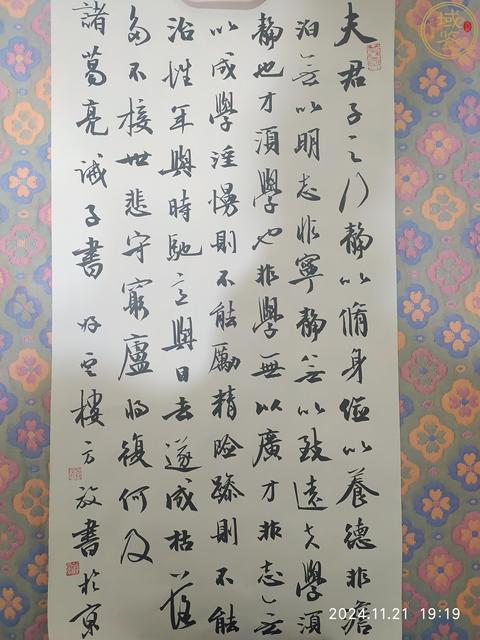 夫君子之行靜以脩身儉以養德非澹
泊無以明志非寧靜無以致遠夫學須
靜也才須學也非學無以廣才非志無
以成學淫慢則不能勵精險躁則不能
治性年與時馳意與日去遂成枯落
多不接世悲守窮廬將復何及
諸葛亮誡子書 樓方放書於京
域鉴
2024.11.21 19:19